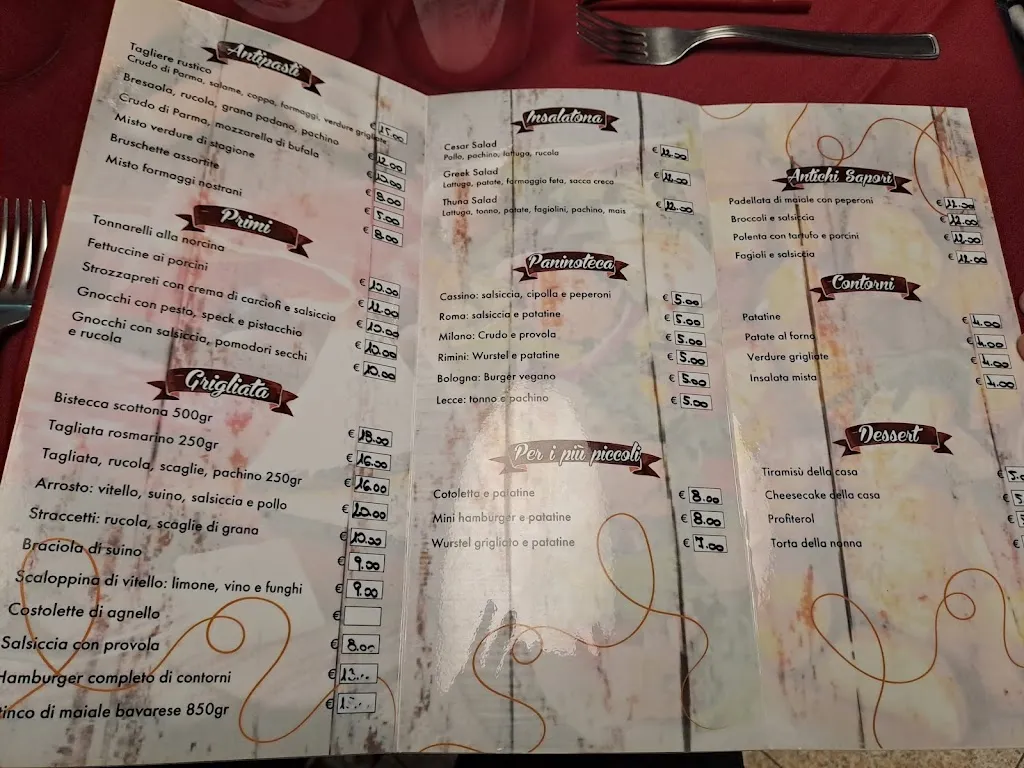 Antipasti
Tagliere rustico
Crudo di Parma, salame, coppa, formaggi, verdure grigliate € 15.00
Bresaola, rucola, grana padano, pachino € 12.00
Crudo di Parma, mozzarella di bufala € 10.00
Misto verdure di stagione € 8.00
Bruschette assortite € 5.00
Misto formaggi nostrani € 8.00
Primi
Tonnarelli alla norcina € 10.00
Fettuccine ai porcini € 12.00
Strozzapreti con crema di carciofi e salsiccia € 10.00
Gnocchi con pesto, speck e pistacchio € 10.00
Gnocchi con salsiccia, pomodori secchi
e rucola € 10.00
Grigliata
Bistecca scottona 500gr € 18.00
Tagliata rosmarino 250gr € 16.00
Tagliata, rucola, scaglie, pachino 250gr € 16.00
Arrosto: vitello, suino, salsiccia e pollo € 20.00
Straccetti: rucola, scaglie di grana € 10.00
Braciola di suino € 9.00
Scaloppina di vitello: limone, vino e funghi € 9.00
Costolette di agnello €
Salsiccia con provola € 8.00
Hamburger completo di contorni €
tinco di maiale bavarese 850gr €
Insalatona
Cesar Salad € 12.00
Pollo, pachino, lattuga, rucola
Greek Salad € 12.00
Lattuga, patate, formaggio feta, sacca creca
Thuna Salad € 12.00
Lattuga, tonno, patate, fagiolini, pachino, mais
Paninoteca
Cassino: salsiccia, cipolla e peperoni € 5.00
Roma: salsiccia e patatine € 5.00
Milano: Crudo e provola € 5.00
Rimini: Wurstel e patatine € 5.00
Bologna: Burger vegano € 5.00
Lecce: tonno e pachino € 5.00
Per i più piccoli
Cotoletta e patatine € 8.00
Mini hamburger e patatine € 8.00
Wurstel grigliato e patatine € 7.00
Antichi Sapori
Padellata di maiale con peperoni € 12.00
Broccoli e salsiccia € 12.00
Polenta con tartufo e porcini € 12.00
Fagioli e salsiccia € 12.00
Contorni
Patatine € 4.00
Patate al forno € 4.00
Verdure grigliate € 4.00
Insalata mista € 4.00
Dessert
Tiramisù della casa €
Cheesecake della casa €
Profiterol €
Torta della nonna €